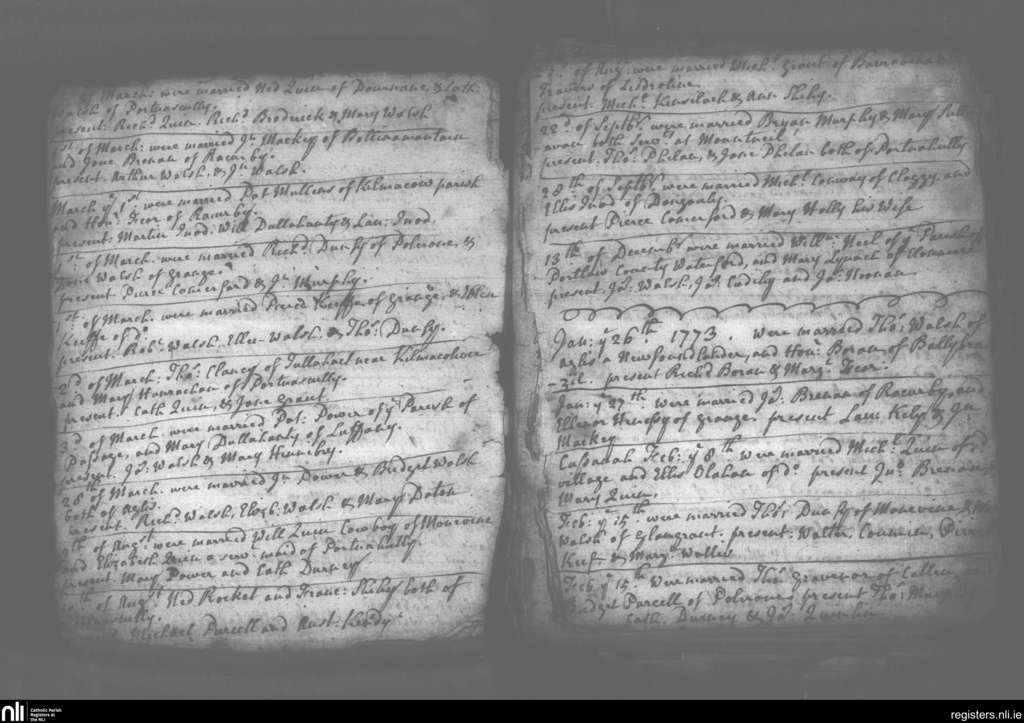 of March: were married Ned Quin of Dournane, & Cath:
Walsh of Portnascully.
present: Richd. Quin. Richd. Brodrick & Mary Walsh
1st of March: were married Jn. Mackey of
and Jone Brenan of Racurby.
present. Arthur Walsh, & Jn. Walsh.
March ye 1st: were married Pat Mullins of Kilmacow parish
and Honr. Fcor of Racurby.
present: Martin Inod: Will Dullahanty & Lau: Inod.
1st. of March. were married Richd. Dunfy of Polrone, &
Jone Walsh of Grange.
present Pierce Comerford & Jn. Murphy.
1st. of March. were married Pierce Keeffe of Grange, & Ellen
Keeffe of do.
present. Robt. Walsh. Ellen Walsh & Thos. Dunfy.
2d of March: Thos: Clancy of Tullahact near Kilmacthomas
and Mary Hanrachan of Portnascully.
present. Cath Quin, & Jone Grant.
3d. of March. were married Pat: Power of ye Parish of
Passage, and Mary Dullahanty of Luffany.
present. Js. Walsh & Mary Hennebry.
28th of March. were married Jn. Power & Bridget Walsh
both of Aglis.
present. Richd. Walsh, Elizb. Walsh & Mary Daton
of Augst: were married Will Quin Cowboy of Moncoine
and Elizabeth Quin a serv: maid of Portnahully.
present. Mary Power and Cath Durney
of Augst Ned Rocket and Franc: Shihy both of
Michael Purcell and Aust: Kendy
of Augt: were married Michl. Grant of
Travers of Lisdroline.
present. Michl. Kinselach & Ann Shihy.
22d. of Septbr. were married Bryan Murphy & Mary
both Servts. at Mountneil
present. Thos. Phelan, & Jone Phelan both of Portnahully
28th of Septbr. were married Michl. Conway of Clogga and
Ellis Inod of Dongonly.
present Pierce Comerford & Mary Holly his Wife
13th of Decembr were married Willm. Neil of ye Parish of
Portlaw County Waterford, and Mary Lynach of
present Js. Walsh, Js. Codihy and Js. Noonan.
Jan: ye 26th. 1773. were married Thos: Walsh of
Aglis a Newfoundlander, and Honr: Boran of Ballybra-
-zil. present Richd Boran & Marg: Fcor.
Jan: ye 27th. were married Js. Brenan of Racurby, and
Ellenor Hennesy of Grange. present Lau: Kely & Jn.
Mackey
Cussanah Feb: ye 8th were married Michl. Quin of d.
village and Ellis Olahan of Do. present Jno. Bresnahan
Mary Quin.
Feb: ye 15th. were married Thos Dunfy of Moneveine &
Walsh of Glangrant. present: Walter
Keefe & Mary Wallis
Feb ye 15th Were married Thos Gravenor of Callen, and
Bridget Purcell of Polrone, present Thos: Murphy
Cath. Durney & Js. Quinlan
nli
Catholic Parish
Registers at
the NLI
registers.nli.ie